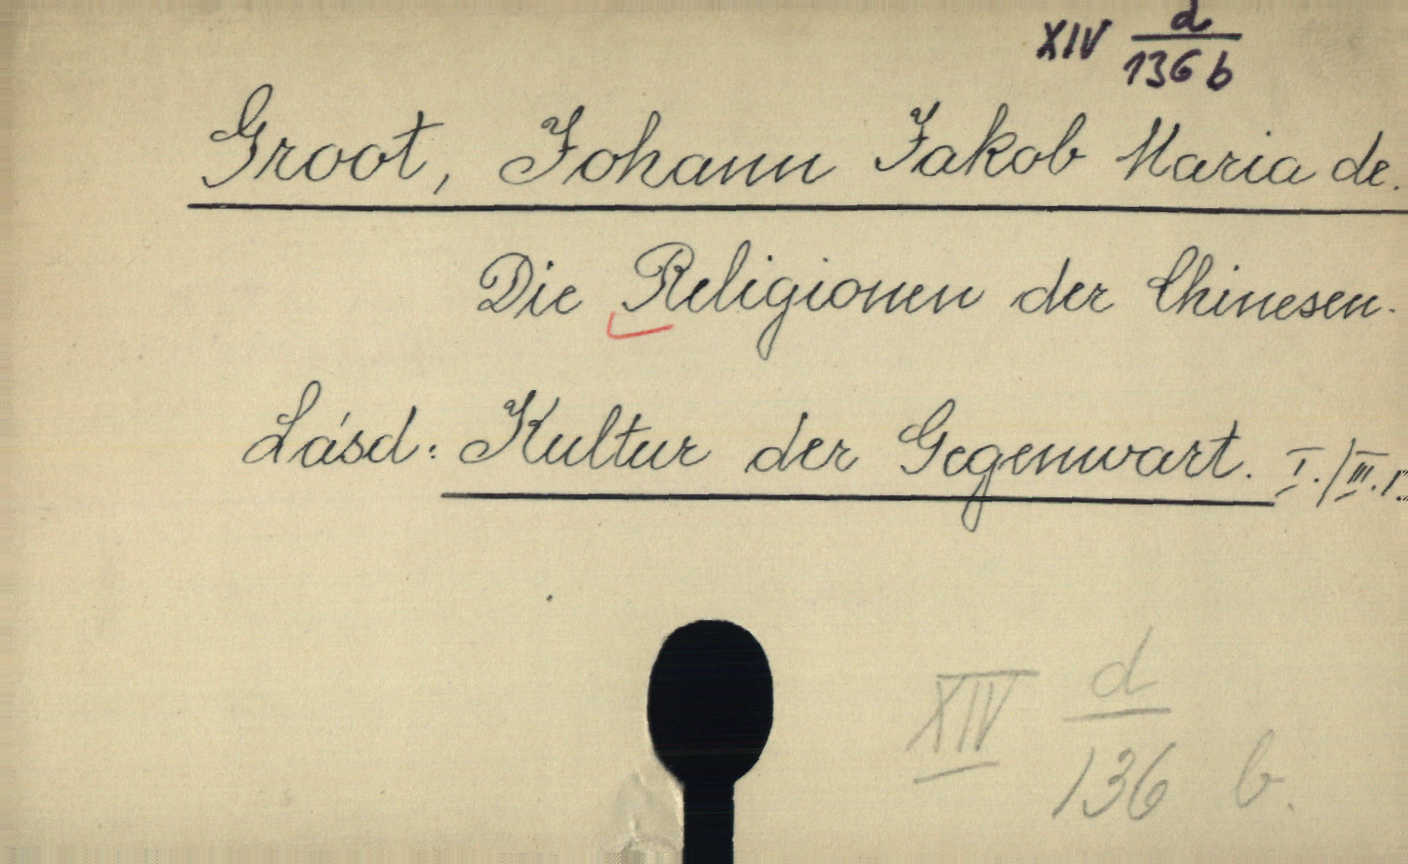 XIV d/136 b
Groot, Johann Jakob Maria de.
Die Religionen der Chinesen.
Lásd: Kultur der Gegenwart. I./III.
XIV d/136 b.